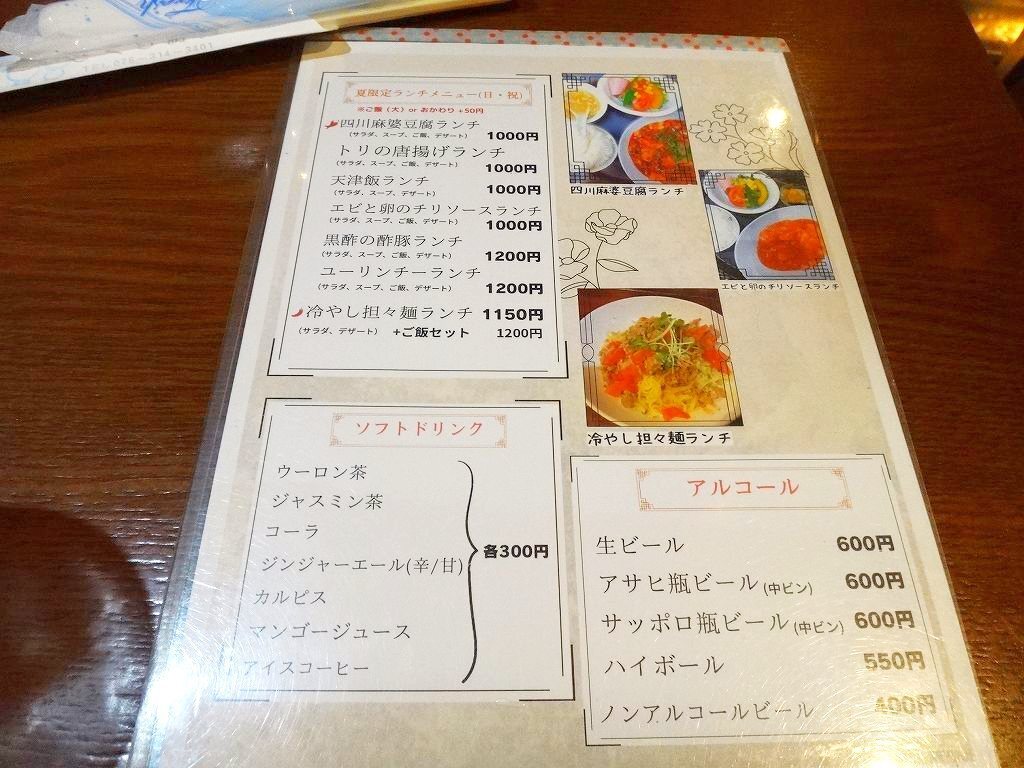 TEL 075-314-3401
夏限定ランチメニュー(日・祝)
※ご飯（大）or おかわり +50円
四川麻婆豆腐ランチ
（サラダ、スープ、ご飯、デザート） 1000円
トリの唐揚げランチ
（サラダ、スープ、ご飯、デザート） 1000円
天津飯ランチ
（サラダ、スープ、デザート） 1000円
エビと卵のチリソースランチ
（サラダ、スープ、ご飯、デザート） 1000円
黒酢の酢豚ランチ
（サラダ、スープ、ご飯、デザート） 1200円
ユーリンチーランチ
（サラダ、スープ、ご飯、デザート） 1200円
冷やし担々麺ランチ 1150円
（サラダ、デザート） +ご飯セット 1200円
四川麻婆豆腐ランチ
エビと卵のチリソースランチ
冷やし担々麺ランチ
ソフトドリンク
ウーロン茶
ジャスミン茶
コーラ
ジンジャーエール(辛/甘)
カルピス
マンゴージュース
アイスコーヒー
各300円
アルコール
生ビール 600円
アサヒ瓶ビール(中ビン) 600円
サッポロ瓶ビール(中ビン) 600円
ハイボール 550円
ノンアルコールビール 400円